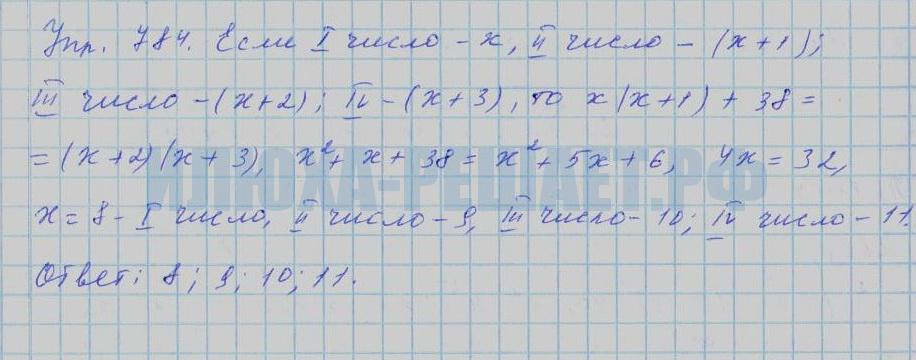 Упр. 784. Если I число – x, II число – (x+1);
III число – (x+2); IV – (x+3), то x(x+1) + 38 =
= (x+2)(x+3), x² + x + 38 = x² + 5x + 6, 4x = 32,
ИЛЮХА-РЕШАЕТ.РФ
x = 8 – I число, II число – 9, III число – 10; IV число – 11.
Ответ: 8; 9; 10; 11.